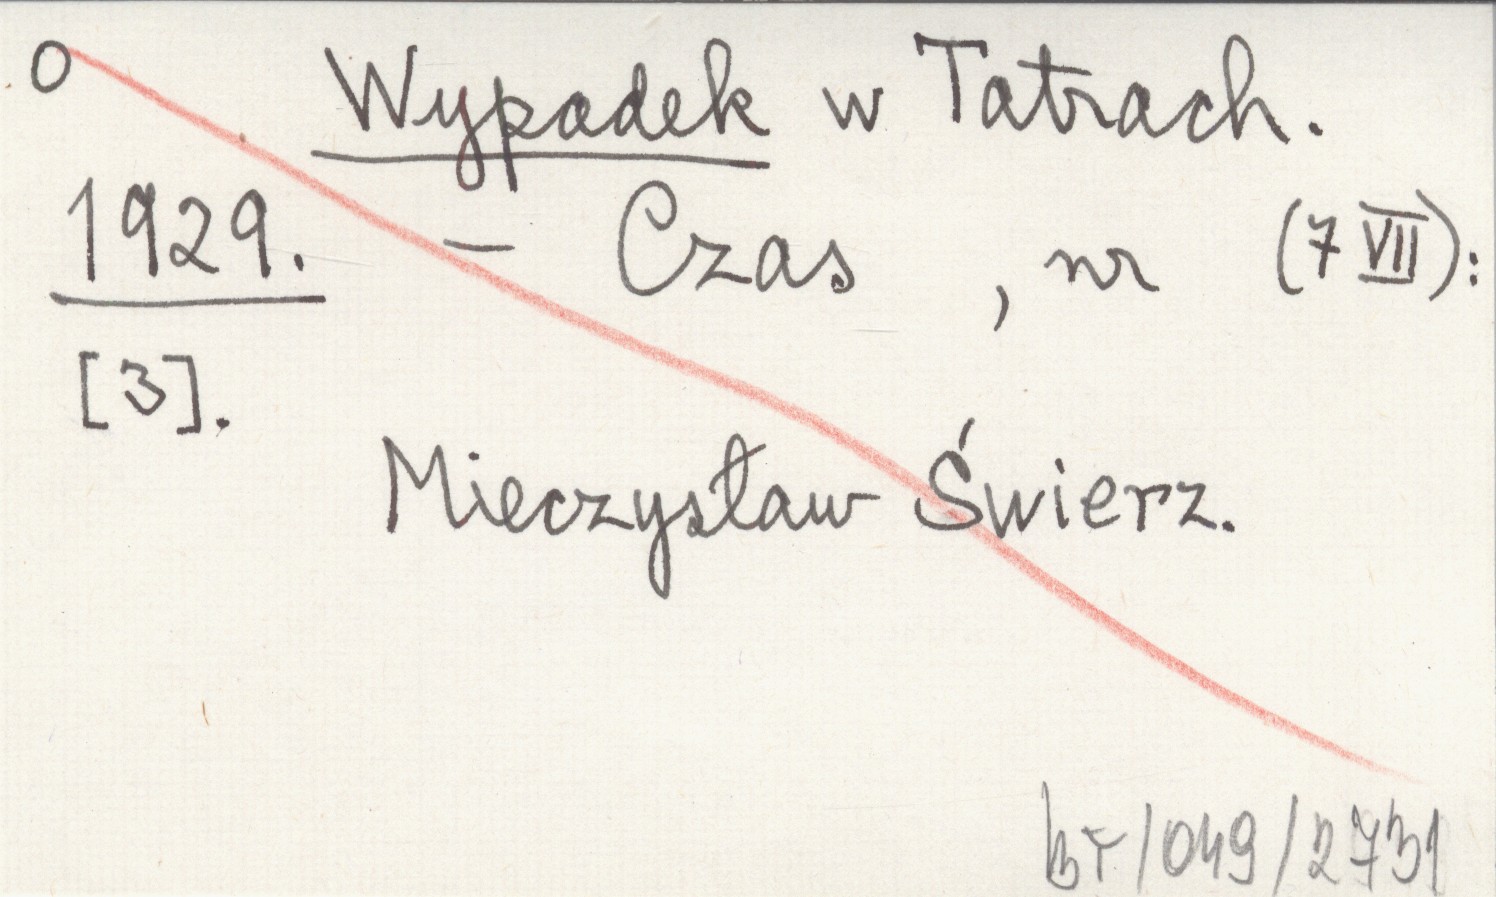 O Wypadek w Tatrach.
1929. — Czas , nr (7 VII):
[3].
Mieczysław Świerz.
/049/2731